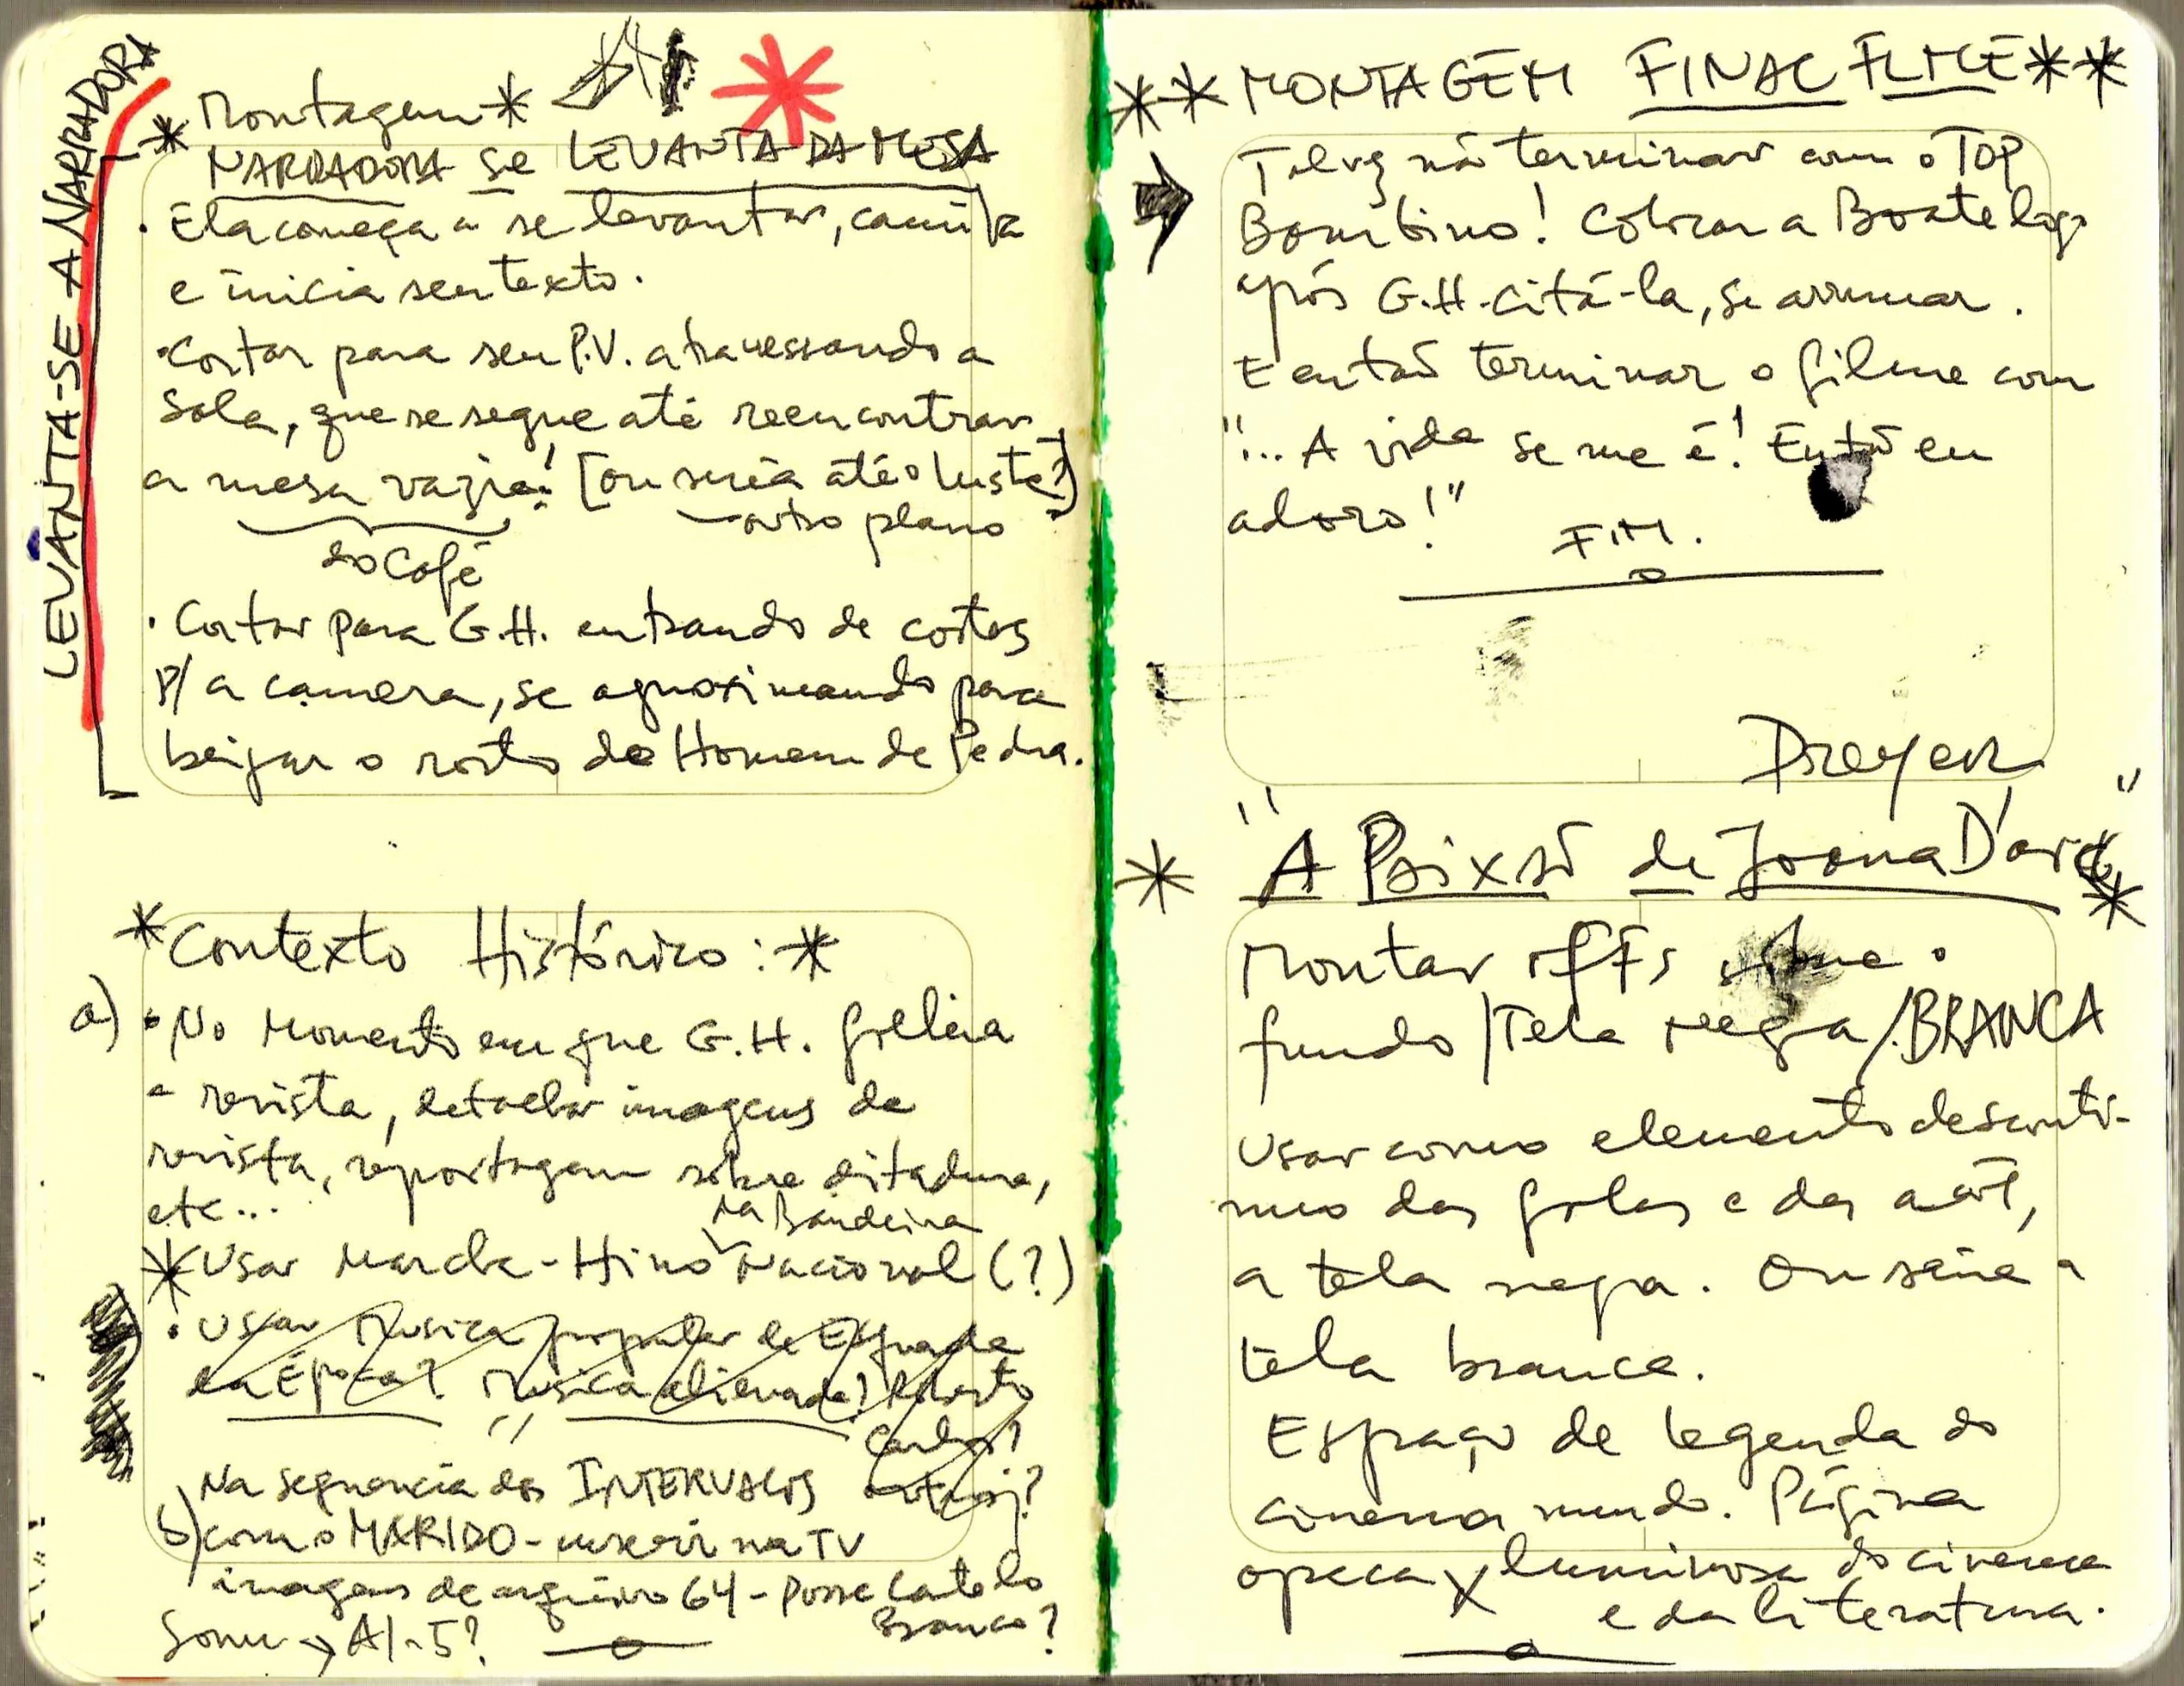 LEVANTA-SE A NARRADORA
* Montagem *
NARRADORA se LEVANTA DA MESA
· Ela começa a se levantar, caminha
e inicia seu texto.
· Cortar para seu P.V. atravessando a
sala, que se segue até reencontrar
a mesa vazia! [ou seria até o lustre?]
do Café
outro plano
· Cortar para G.H. entrando de costas
p/ a camera, se aproximando para
beijar o rosto do Homem de Pedra.
* Contexto Histórico: *
a) · No momento em que G.H. folheia
a revista, detalhar imagens da
revista, reportagem sobre ditadura,
etc...
na Bandeira
* Usar Marcha - Hino Nacional (?)
· Usar Musica popular de Esquerda
da Época? Musica alienada? Roberto
Carlos?
Na sequencia dos INTERVALOS
b) com o MARIDO - inserir na TV
imagens de arquivo 64 - Posse Castelo
Branco?
Som → AI-5?
** MONTAGEM FINAL FILME **
→ Talvez não terminar com o TOP
Bambino! Colocar a Boate logo
após G.H. citá-la, se arrumar.
E então terminar o filme com
"... A vida se me é! Então eu
adoro!"
FIM.
Dreyer
* "A Paixão de Joana D'arc" *
Montar OFFs sobre o
fundo / Tela negra / BRANCA
Usar como elemento desconti-
nuo das falas e da ação,
a tela negra. Ou seria a
tela branca.
Espaço de legenda do
cinema mudo. Página
opaca X luminosa do cinema
e da literatura.